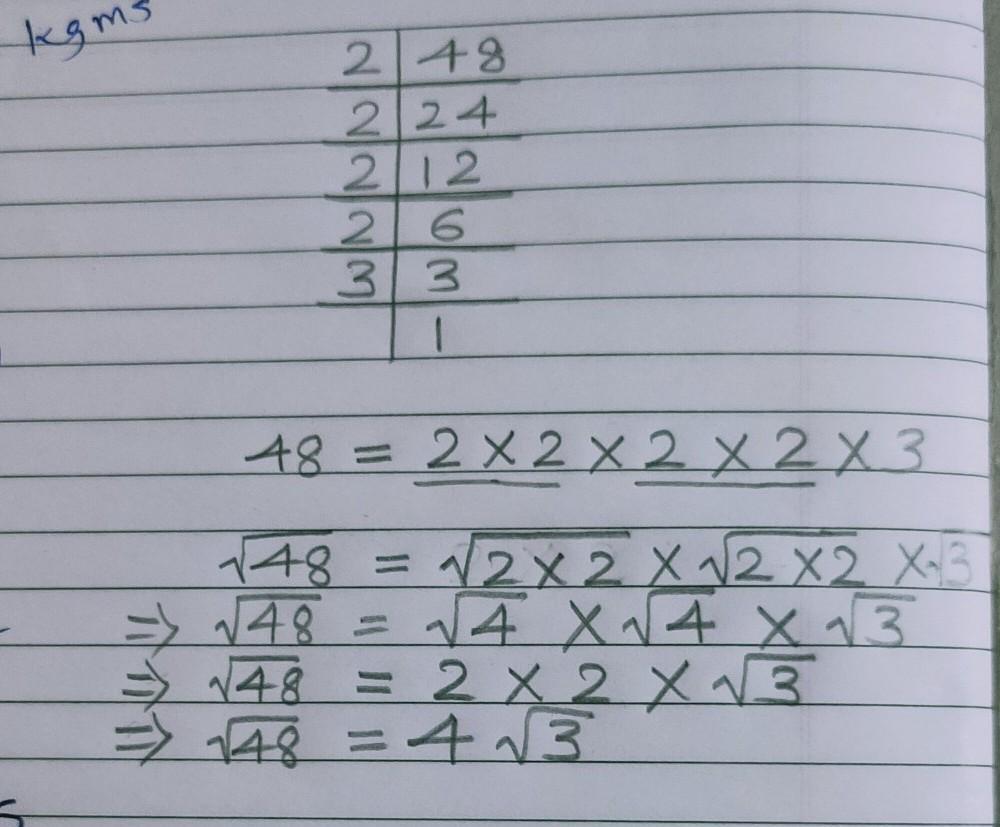 kgms
2 | 48
2 | 24
2 | 12
2 | 6
3 | 3
| 1
48 = 2 × 2 × 2 × 2 × 3
√48 = √2×2 × √2×2 × √3
⇒ √48 = √4 × √4 × √3
⇒ √48 = 2 × 2 × √3
⇒ √48 = 4 √3